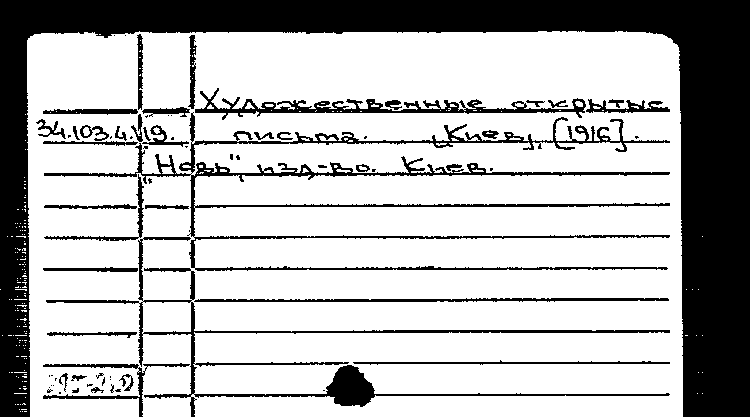 Художественные открытые
34.103.4.1/19. письма. „Киев", [1916].
„Новь", изд-во. Киев.